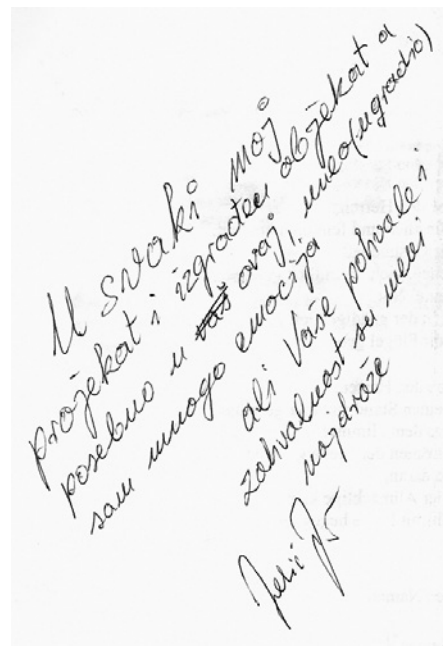 U svaki moj
projekat i izgrađen objekat a
posebno u ovaj, uneo (ugradio)
sam mnogo emocija
ali Vaše pohvale i
zahvalnost su meni
najdraže
Jelić